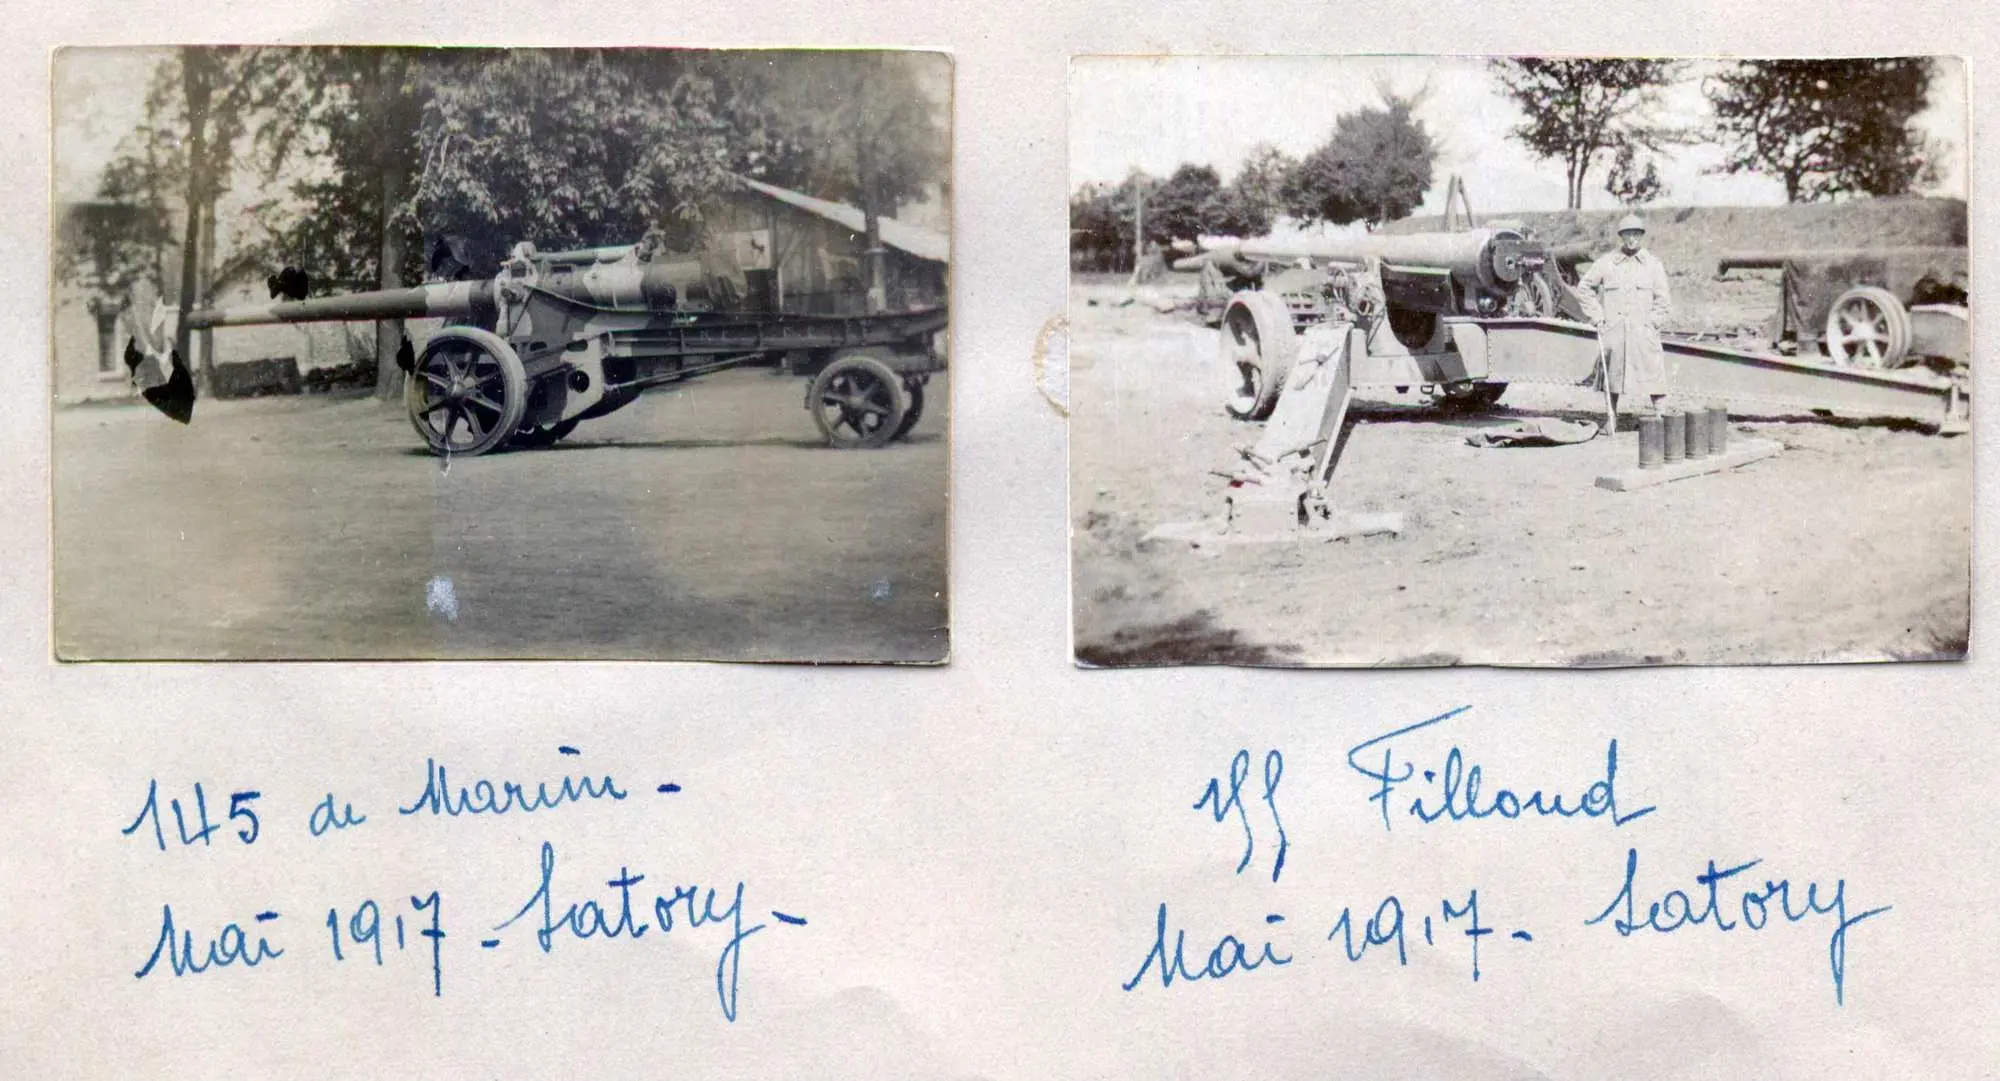 145 de Marine -
Mai 1917 - Satory -
155 Filloud
Mai 1917 - Satory